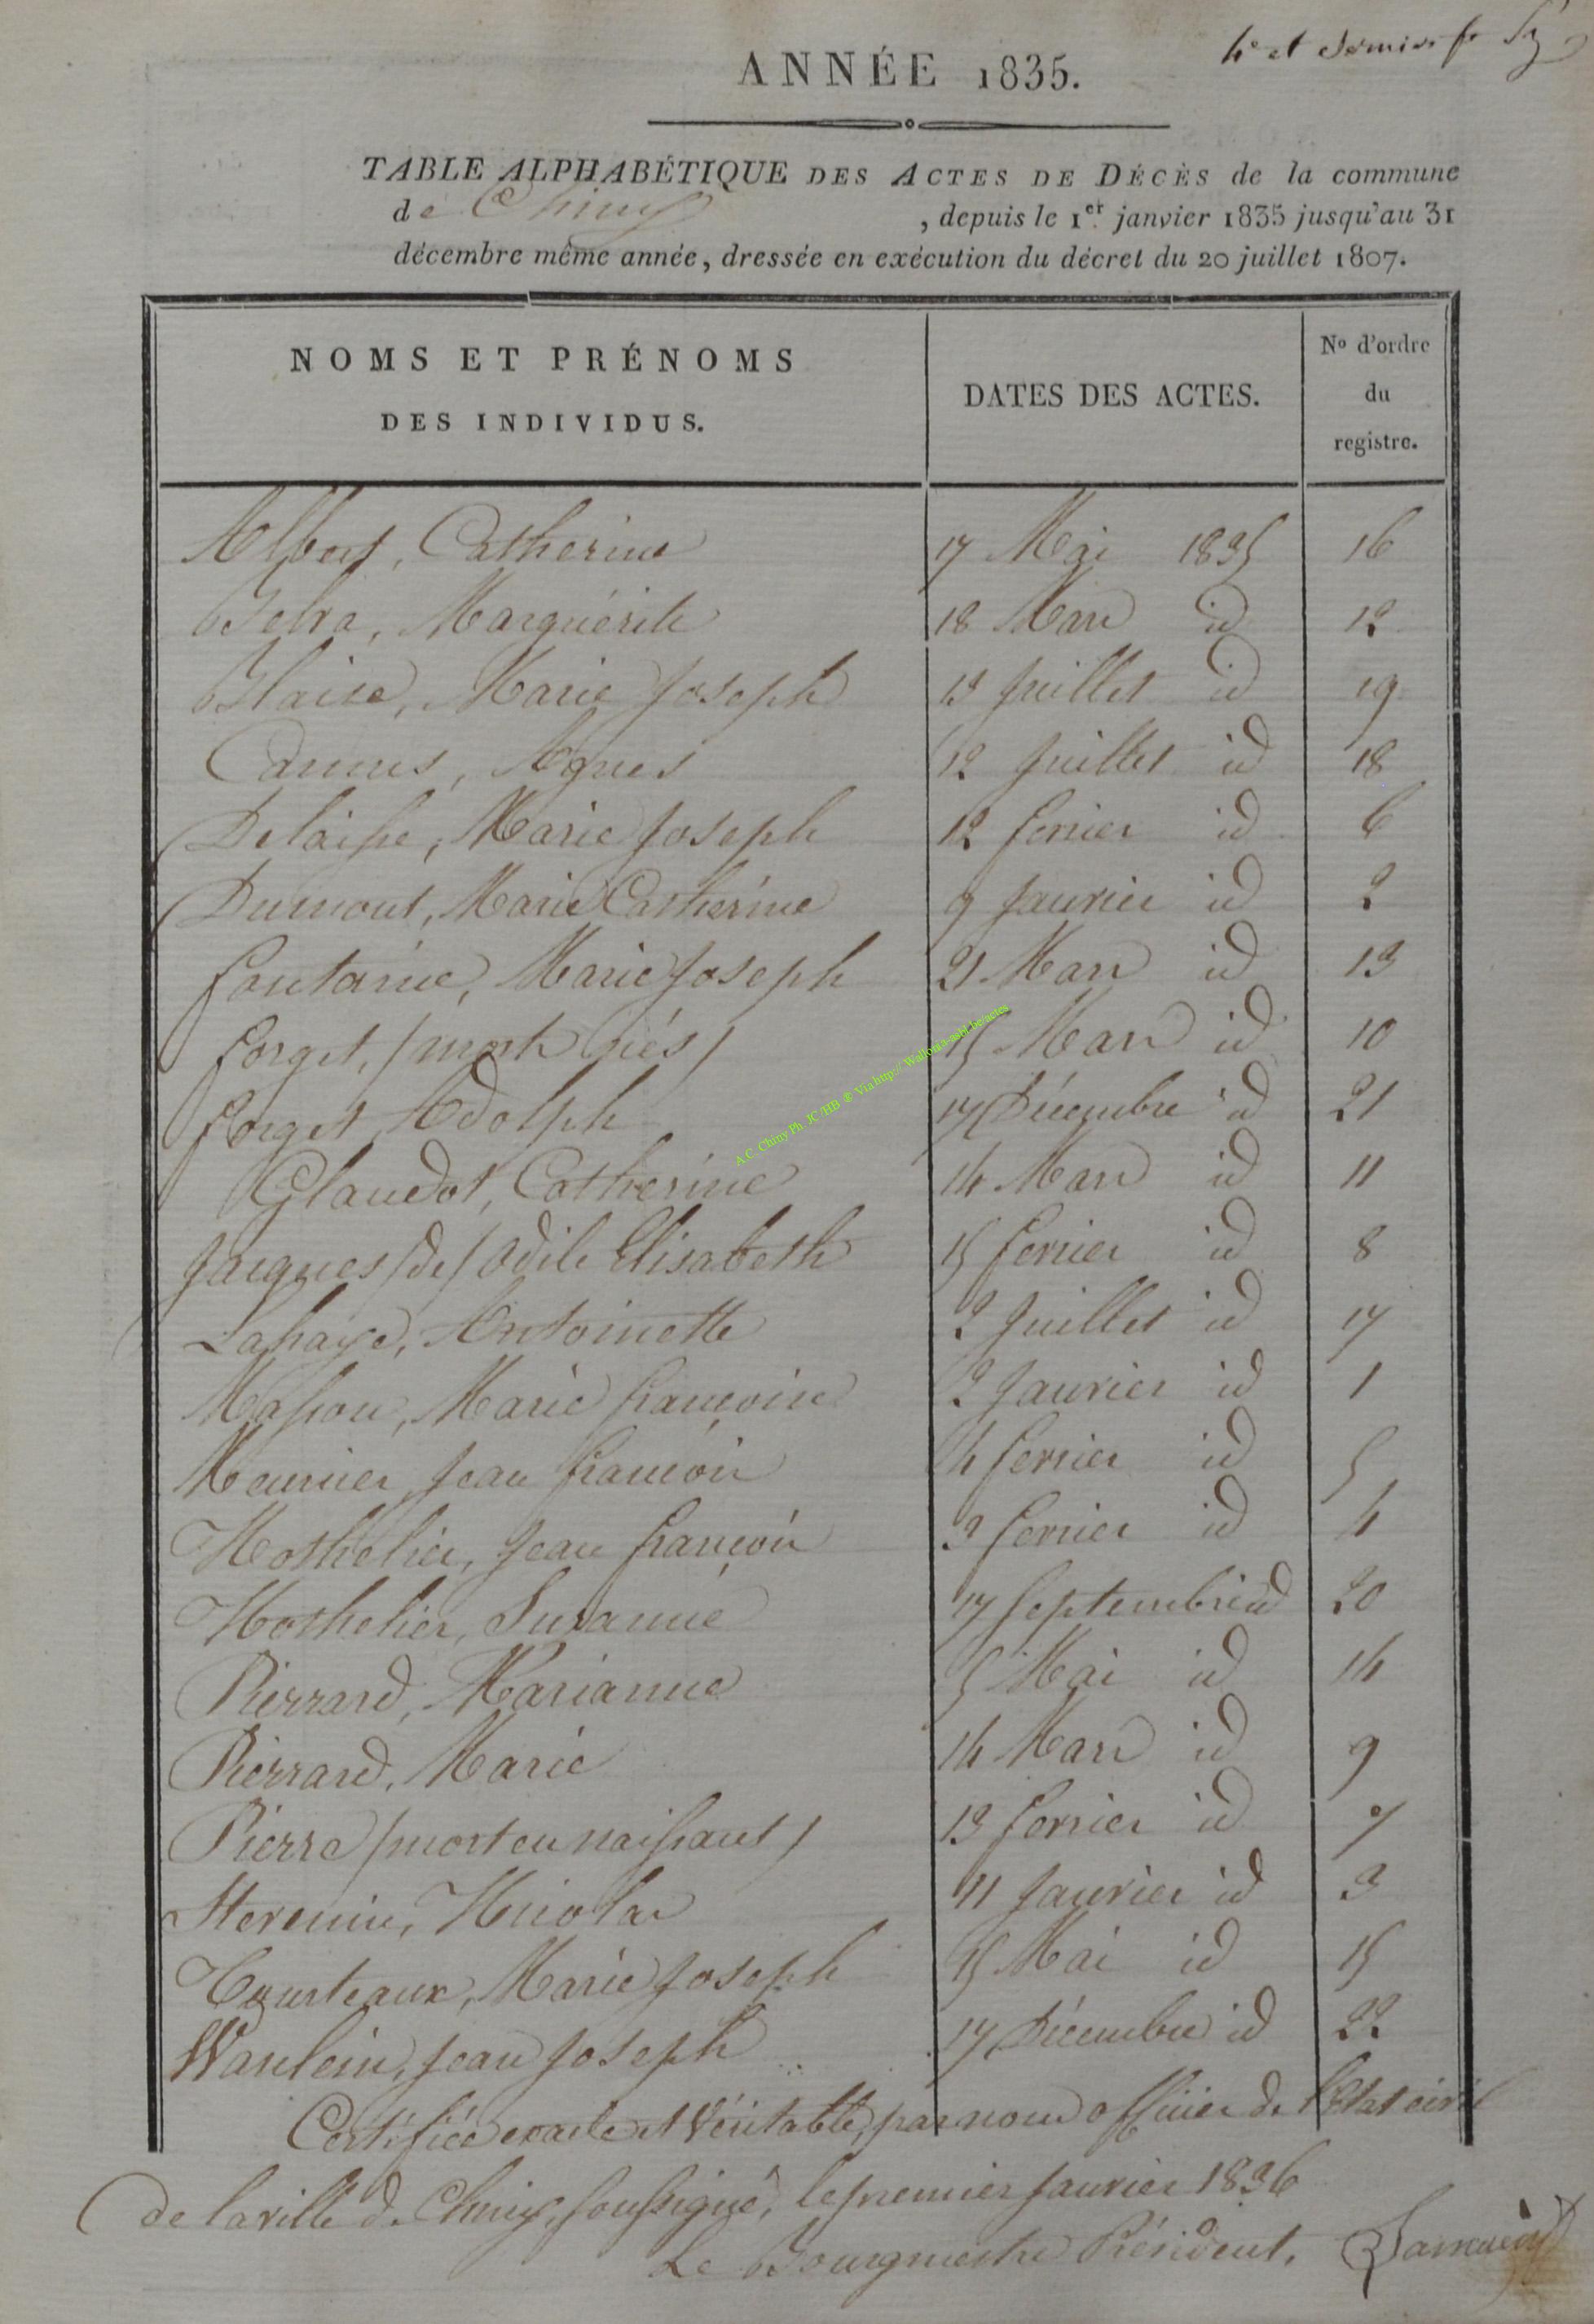 4e et dernier f
ANNÉE 1835.
TABLE ALPHABÉTIQUE DES ACTES DE DÉCÈS de la commune
de Chiny , depuis le 1er janvier 1835 jusqu'au 31
décembre même année, dressée en exécution du décret du 20 juillet 1807.
NOMS ET PRÉNOMS DES INDIVIDUS. DATES DES ACTES. No d'ordre du registre.
Albert, Catherine 17 Mai 1835 16
Gelva, Marguérite 18 Mars id 12
Blaise, Marie Joseph 13 Juillet id 19
Cannes, Agnes 12 Juillet id 18
Delaisse, Marie Joseph 12 fevrier id 6
Dumont, Marie Catherine 9 Janvier id 2
fontaine, Marie Joseph 21 Mars id 13
forget, (morts nés) 15 Mars id 10
forget Adolph 17 Décembre id 21
Glaudot, Catherine 14 Mars id 11
Jacques (de) Odile Elisabeth 15 fevrier id 8
Lahaye, Antoinette 2 Juillet id 17
Masson, Marie françoise 2 Janvier id 1
Meunier Jean françois 4 fevrier id 5
Hosthelier, Jean françois 3 fevrier id 4
Hosthelier, Susanne 17 septembre id 20
Pierrard, Marianne 5 Mai id 14
Pierrard, Marie 14 Mars id 9
Pierre (mort en naissant) 13 fevrier id 7
Stevenin, Nicolas 11 Janvier id 3
Tourteaux, Marie Joseph 15 Mai id 15
Wanlein, Jean Joseph 17 Décembre id 22
Certifiée exacte et véritable, par nous officier de l'Etat civil
de la ville de Chiny, soussigné, le premier Janvier 1836
Le Bourgmestre Président,
A.C. Chiny Ph. JC/HB ® Via http://Wallonia-asbl.be/actes